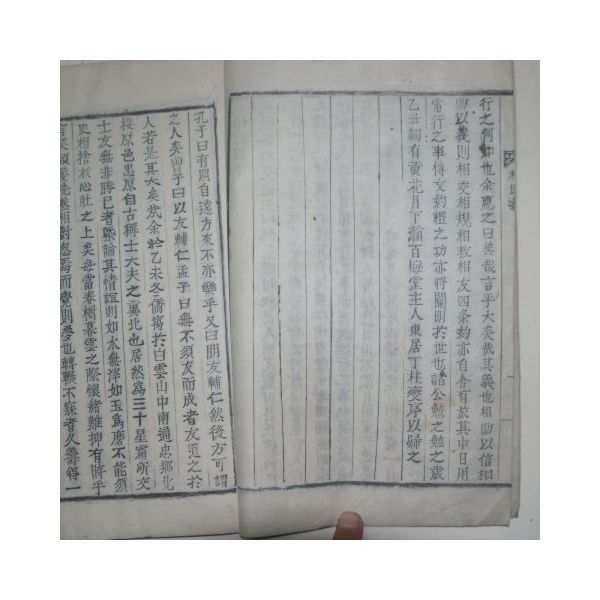 行之何如也余應之曰善哉言乎大矣哉其義也相助以信相
助以義則相交相規相救相友四條約亦自舍有於其中日用
當行之事傳文約禮之功亦將闡明於世也諸公勉之勉之歲
乙丑榴有黃花月下瀚百悔堂主人東居丁柱燮序以歸之
孔子曰有朋自遠方來不亦樂乎又曰朋友輔仁然後方可謂
之人矣曾子曰以友輔仁孟子曰無不須友而成者友道之於
人若是其大矣哉余於乙未冬僑寓於白雲山中南通忠鄉北
接原邑惠原自古稱士大夫之冀北也居然爲三十星霜所交
士友無非勝已者槩論其情誼則如水無滓如玉爲磨不能須
臾相捨於心肚之上矣每當春樹暮雲之際懷緒難抑有時乎
相對悤焉而覺則夢也轉輾不寐者久籌得一